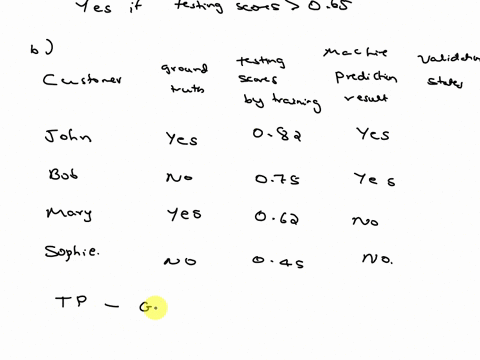 Yes if testing scores > 0.65
b)
Customer ground truth testing scores by training Machine prediction result Validation states
John Yes 0.82 Yes
Bob No 0.75 Yes
Mary Yes 0.62 No
Sophie. NO 0.45 No.
TP - G.